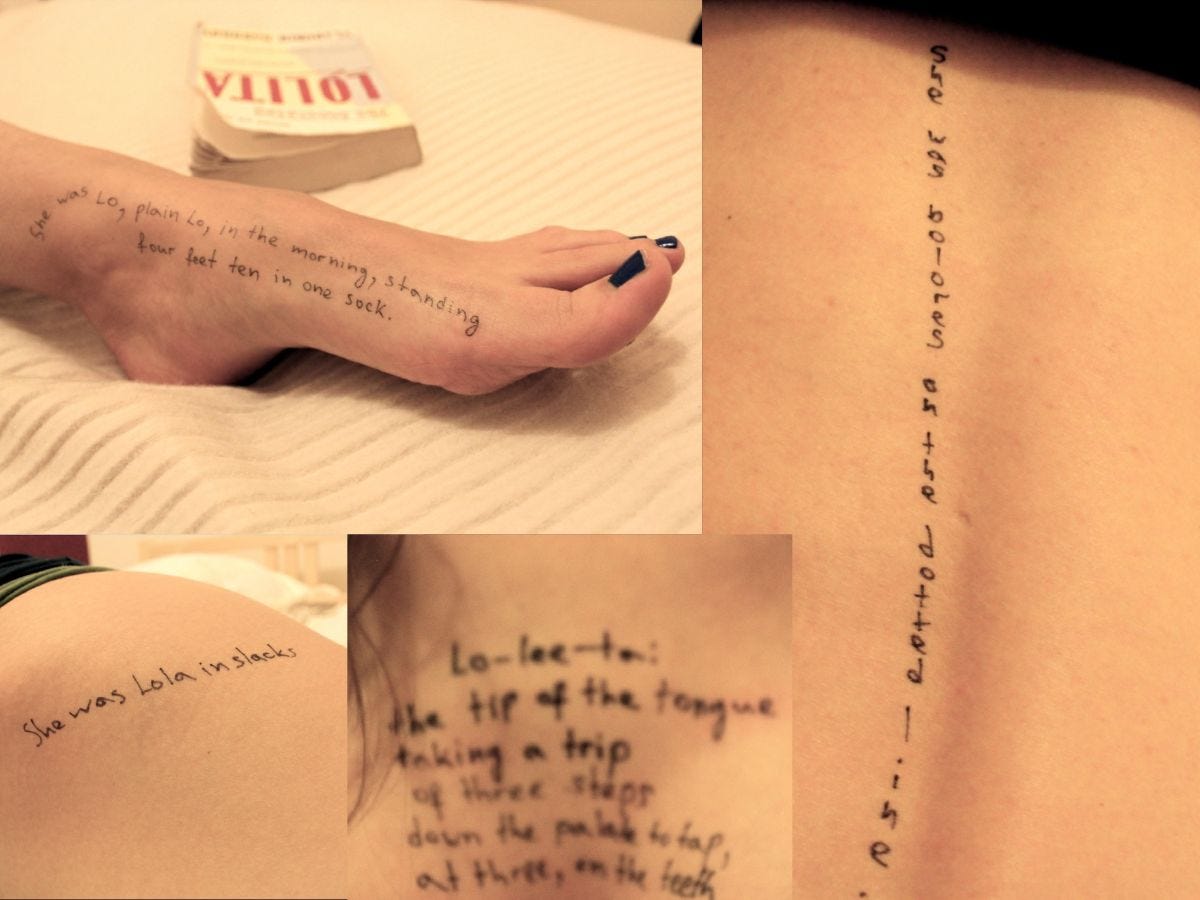 LOLITA
She was Lo, plain Lo, in the morning, standing
four feet ten in one sock.
She was Dolores on the dotted line.
She was Lola in slacks
Lo-lee-ta:
the tip of the tongue
taking a trip
of three steps
down the palate to tap,
at three, on the teeth